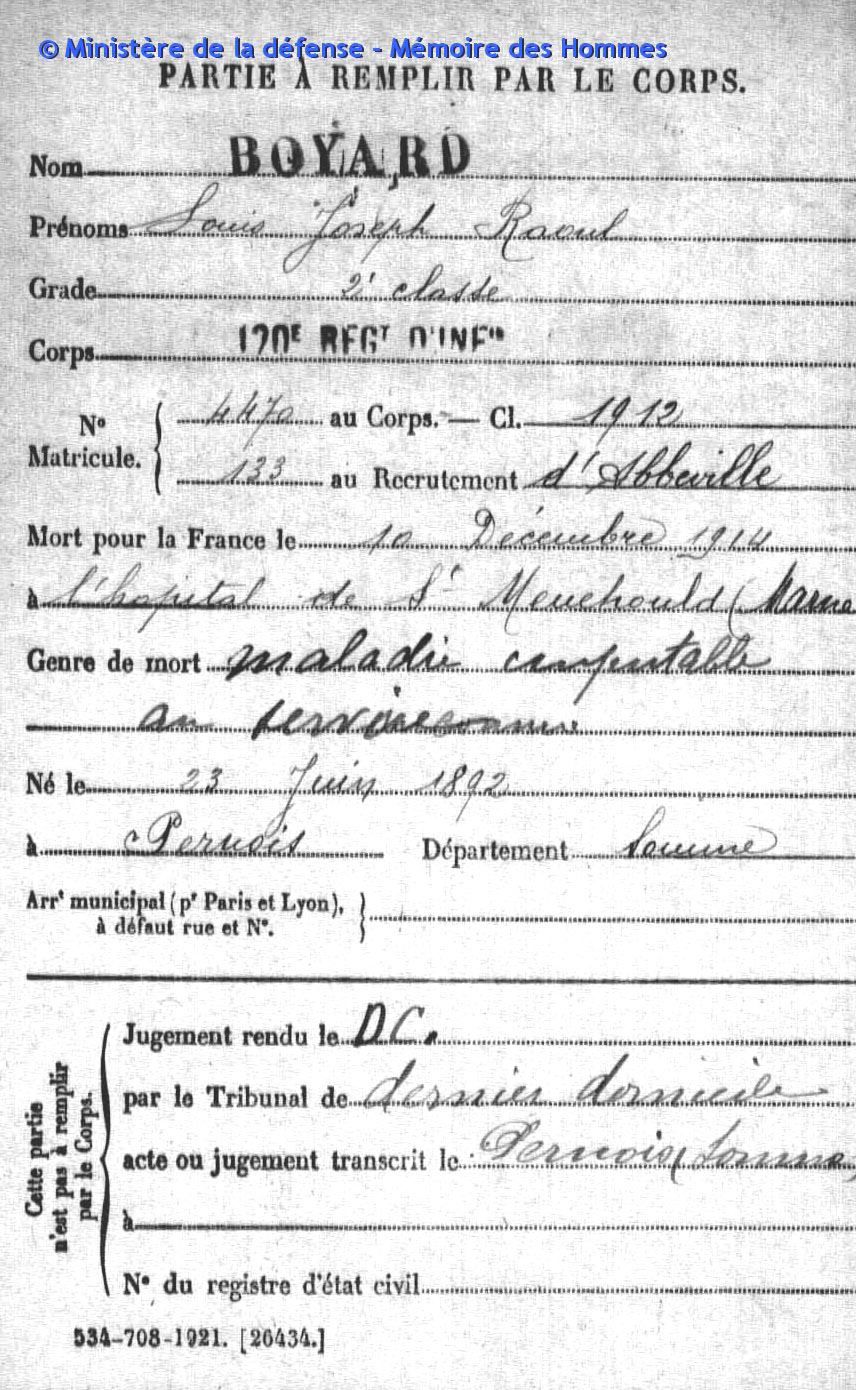 © Ministère de la défense - Mémoire des Hommes
PARTIE À REMPLIR PAR LE CORPS.
Nom BOYARD
Prénoms Louis Joseph Raoul
Grade 2e classe
Corps 120E REGT D'INFie
No Matricule. 4470 au Corps. — Cl. 1912
133 au Recrutement d'Abbeville
Mort pour la France le 10 Décembre 1914
à l'hopital de St Menehould (Marne
Genre de mort maladie imputable
au service
Né le 23 Juin 1892
à Pernois Département Somme
Arrt municipal (pr Paris et Lyon),
à défaut rue et No.
Cette partie
n'est pas à remplir
par le Corps.
Jugement rendu le DC.
par le Tribunal de dernier domicile
acte ou jugement transcrit le Pernois (Somme)
à
No du registre d'état civil
534-708-1921. [26434.]